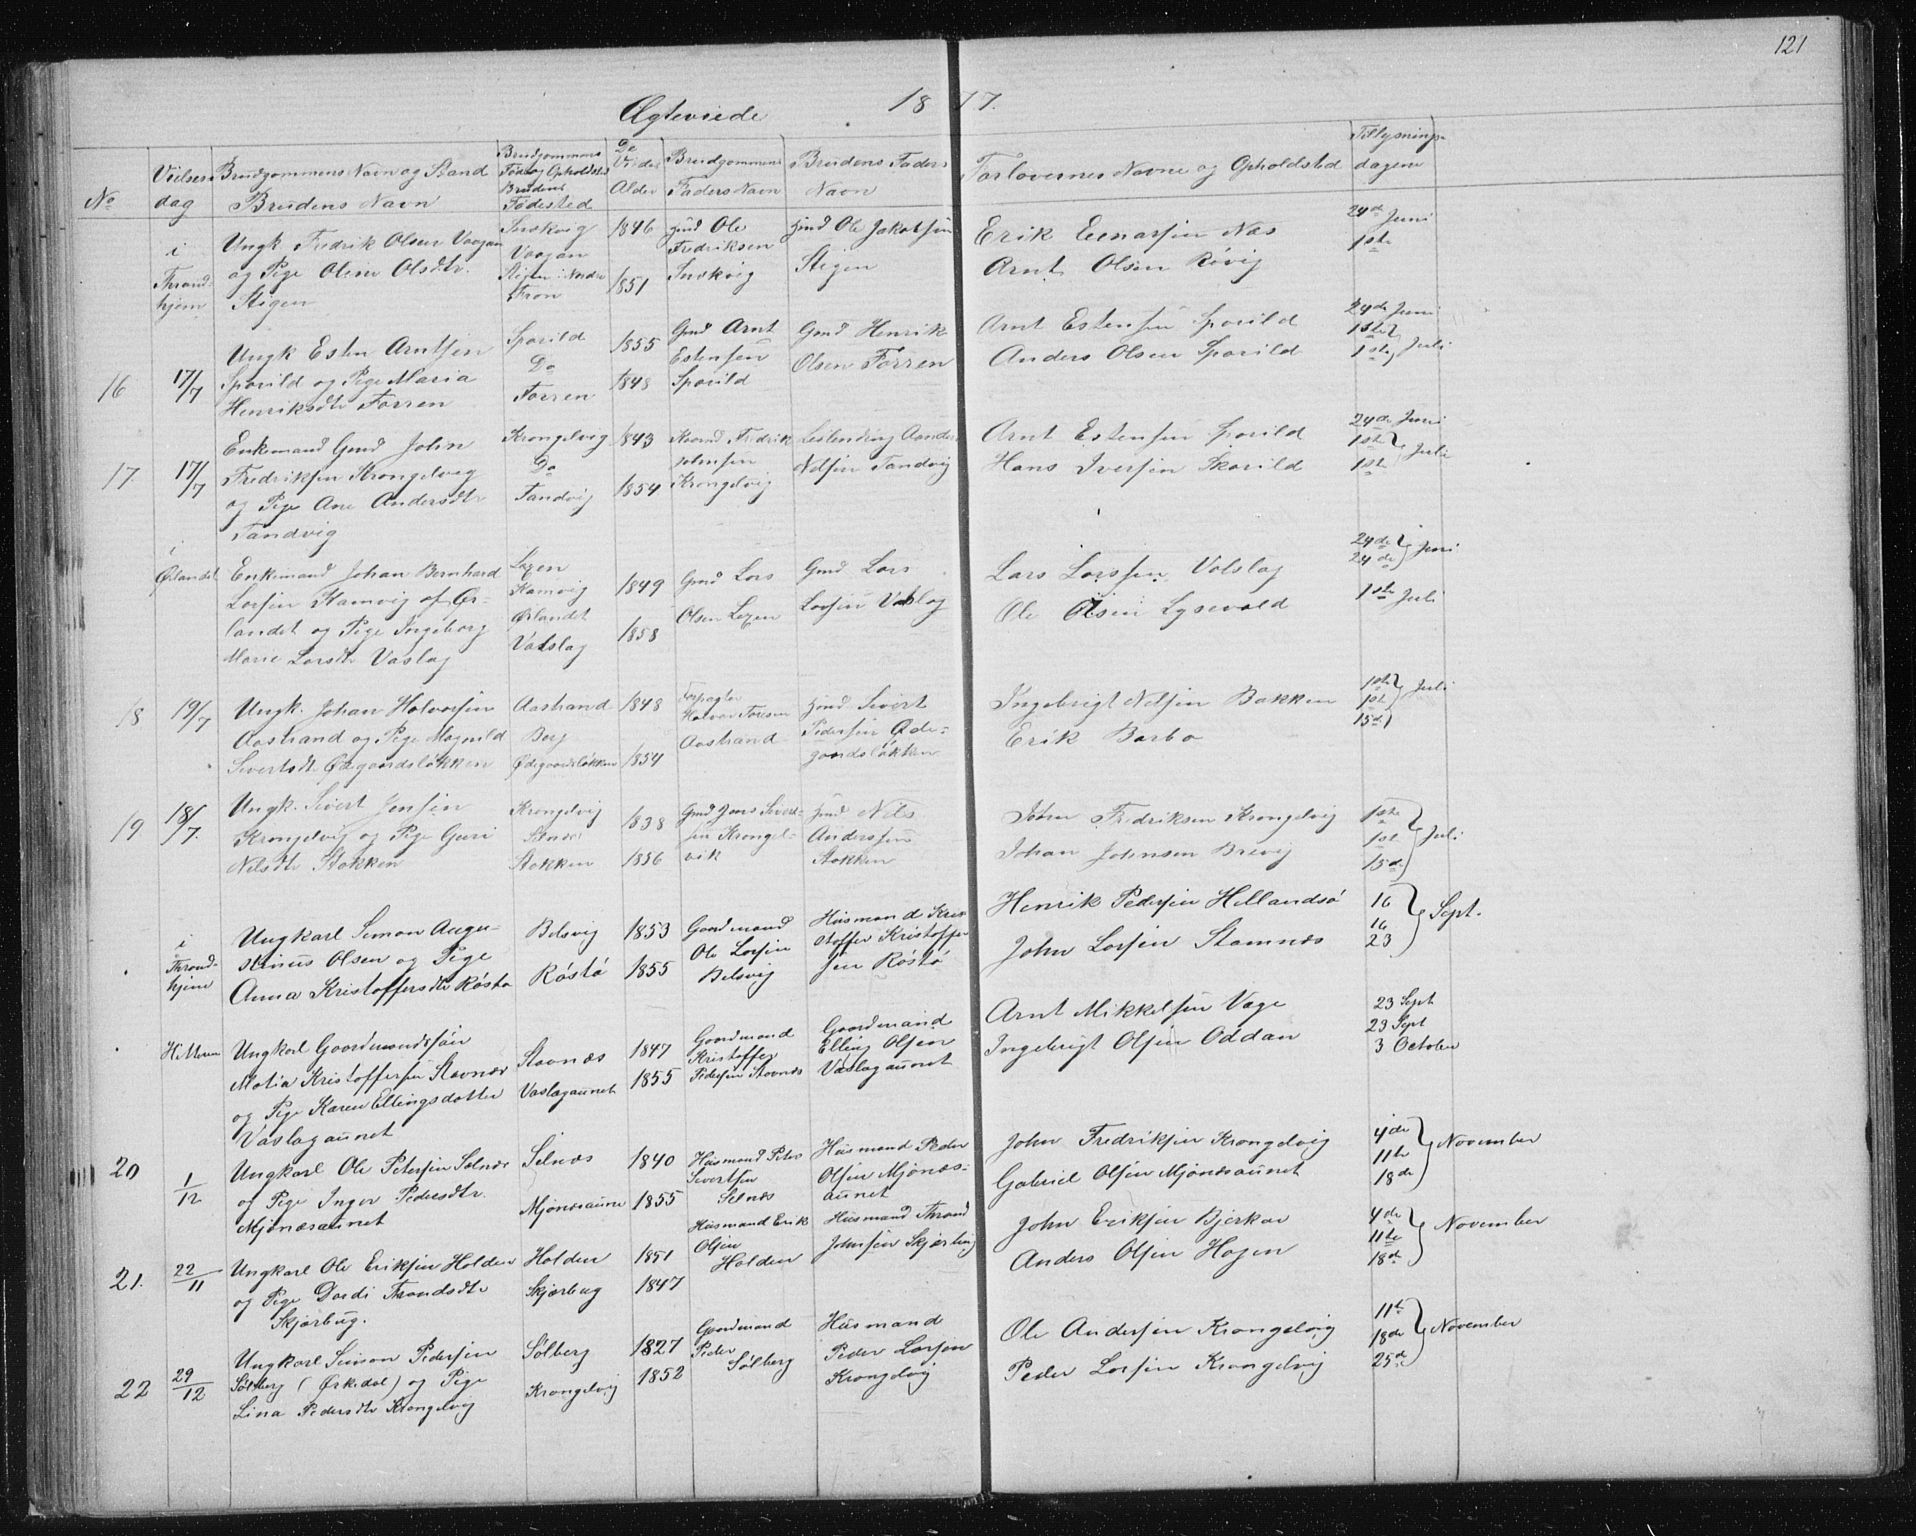 121
Ægteviede 1877.
No
Vielses dag
Brudgommens Navn og Stand
Brudens Navn
Brudgommens Føde og Opholdsted
Brudens Fødested
De Viedes Alder
Brudgommens Faders Navn
Brudens Faders Navn
Forlovernes Navne og Opholdsted
Tillysnings dagene
i Throndhjem
Ungk. Fredrik Olsen Vaagan
og Pige Olisu Olsdtr.
Stigen
Vaagan
Fron
1846
1851
Hmd Ole
Fredriksen
Hmd Ole Jakobsen
Stegen
Erik Einarsen Næs
Arnt Olsen Røvig
24de Juni
1ste
16
17/7
Ungk Esten Arntsen
Sporild og Pige Maria
Henriksdtr Forren
Sporild
Do
Forren
1855
1848
Gmd Arnt
Estensen
Sporild
Gmd Henrik
Olsen Forren
Arnt Estensen Sporild
Anders Olsen Sporild
24de Juni
1ste
1ste Juli
17
17/7
Enkemand Gmd John
Fredriksen Krongelvig
og Pige Ane Andersdtr
Tandvig
Krongelvig
Do
Tandvig
1843
1854
Fredrik
Johnsen
Krongelvig
Leilending Anders
Nelsen Tandvig
Arnt Estensen Sporild
Hans Iversen Skorild
24de Juni
1ste
1ste Juli
i Ørlandet
Enkemand Johan Bernhard
Larsen Kamvig af Ør-
landet og Pige Ingeborg
Marie Larsdtr Vaslag
Lexen
Kamvig
Ørlandet
Vatslag
1849
1858
Gmd Lars
Olsen Lexen
Gmd Lars
Larsen Vaslag
Lars Larssen Vatslag
Ole Olsen Lysevold
24de
24de Juni
1ste Juli
18
19/7
Ungk. Johan Halvorsen
Aastrand og Pige Magnild
Sivertsdtr Ødegaardsløkken
Aastrand
Berg
Ødegaardsløkken
1848
1854
Forpagter
Halvor
Aastrand
Hmd Sivert
Pedersen Øde-
gaardsløkken
Ingebrigt Nelsen Bakken
Erik Barbo
1ste
1ste Juli
15de
19
18/7.
Ungk. Sivert Jensen
Krongelvig og Pige Guri
Nelsdtr Stokken
Krongelvig
Selnæs
Stokken
1838
1856
Gmd Jens Sivert-
sen Krongel-
vik
Hmd Nels
Anderssen
Stokken
John Fredriksen Krongelvig
Johan Johnsen Brevig
1ste
1ste Juli
15de
i Throndhjem
Ungkarl Simon Augu-
stinus Olsen og Pige
Anna Kristoffersdtr Røstø
Belsvig
Røstø
1853
1855
Gaardmand
Ole Larsen
Belsvig
Husmand Kris
toffer Kristoffer
sen Røstø
Henrik Pedersen Hellandsø
John Larsen Stamnes
16
16 Sept.
23
Hitteren
Ungkarl Gaardmandssøn
Matia Kristoffersen Stavnæs
og Pige Karen Ellingsdatter
Vaslagaunet
Stavnæs
Vaslagaunet
1847
1855
Gaardmand
Kristoffer
Pedersen Stavnæs
Gaardmand
Elling Olsen
Vaslagaunet
Arnt Mikkelsen Vage
Ingebrigt Olsen Oddan
23 Sept
23 Sept
3 October
20
1/12
Ungkarl Ole Petersen Selnæs
og Pige Inger Pedersdtr.
Mjønesaunet
Selnæs
Mjønesaune
1840
1855
Husmand Peter
Sivertsen
Selnæs
Husmand Peder
Olsen Mjønæs-
aunet
John Fredriksen Krongelvig
Gabriel Olsen Mjønæsaunet
4de
11te November
18de
21.
22/11
Ungkarl Ole Eriksen Holden
og Pige Dordi Trondsdtr
Skjærbug.
Holden
Skjærbug
1851
1847
Husmand Erik
Olsen
Holden
Husmand Thrond
Johnsen Skjærbug
John Eriksen Bjerkan
Anders Olsen Hagen
4de
11te November
18de
22
29/12
Ungkarl Simon Pedersen
Sølberg (Ørkedal) og Pige
Lina Pedersdtr Krongelvig
Sølberg
Krongelvig
1827
1852
Gaardmand
Peder
Sølberg
Husmand
Peder Larsen
Krongelvig
Ole Andersen Krongelvig
Peder Larsen Krongelvig
11te
18de November
25de